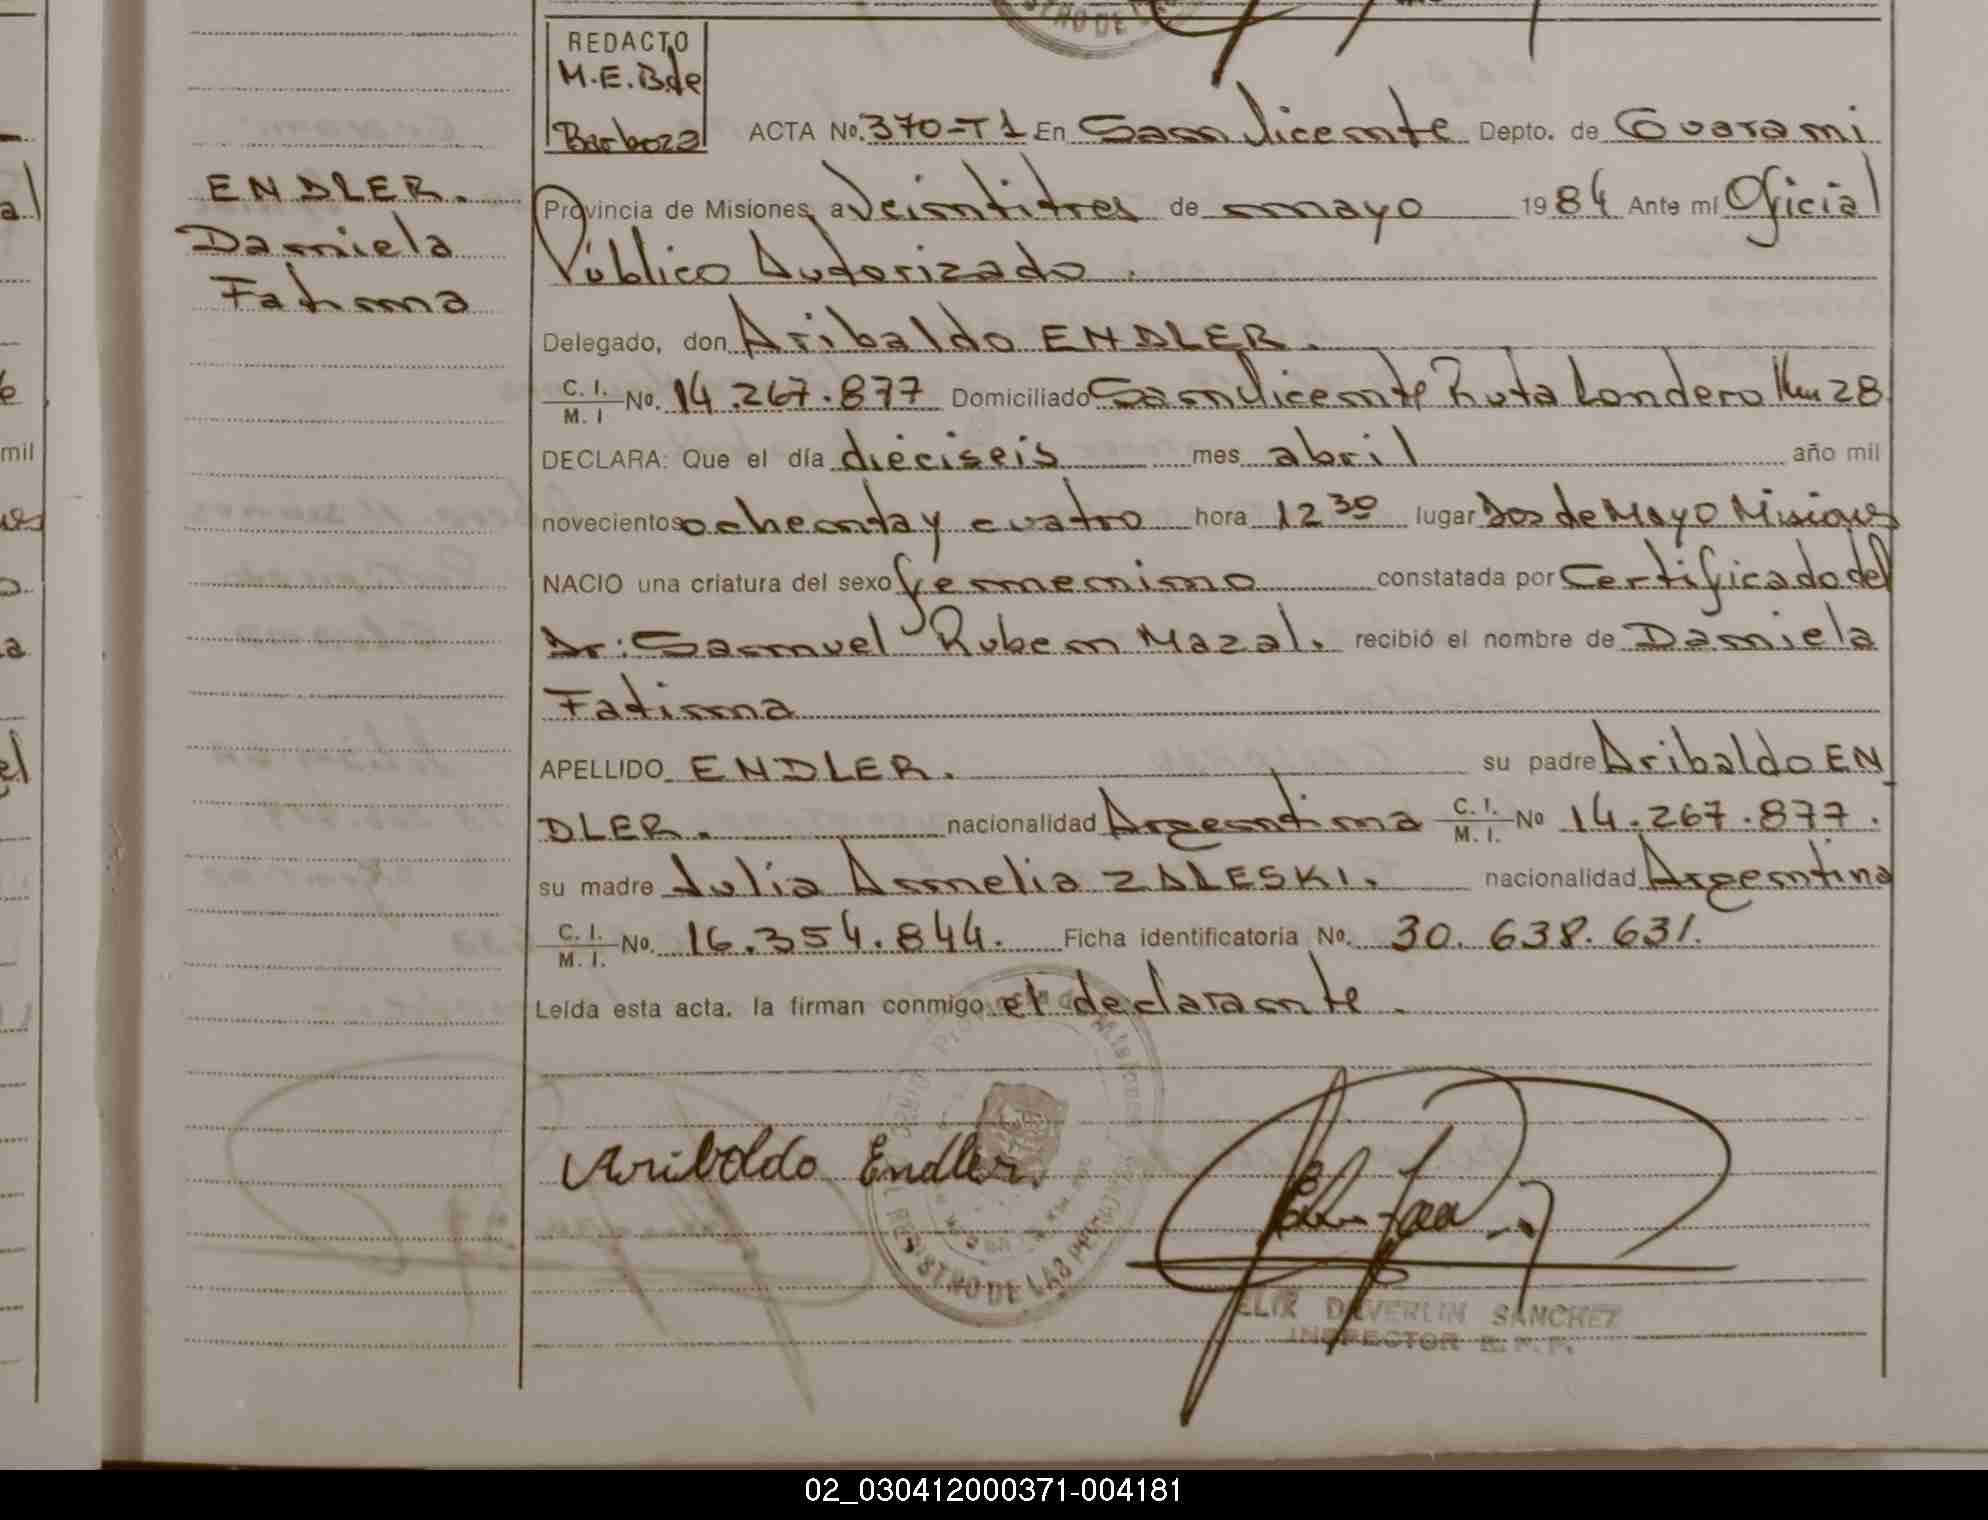 REDACTO
M.E.B.de
Barboza
ACTA No. 370-T1 En San Vicente Depto. de Guaraní
ENDLER.
Daniela
Fatima
Provincia de Misiones, a Veintitres de mayo 1984 Ante mí Oficial
Público Autorizado.
Delegado, don Aribaldo ENDLER.
C. I. / M. I No. 14.267.877 Domiciliado San Vicente Ruta Londero Km 28
DECLARA: Que el día dieciseis mes abril año mil
novecientos ochenta y cuatro hora 12 30 lugar Dos de Mayo Misiones
NACIO una criatura del sexo femenino constatada por Certificado del
Dr: Samuel Ruben Mazal. recibió el nombre de Daniela
Fatima
APELLIDO ENDLER. su padre Aribaldo EN
DLER. nacionalidad Argentina C. I. / M. I. No 14.267.877.
su madre Julia Amelia ZALESKI. nacionalidad Argentina
C. I. / M. I. No. 16.354.844. Ficha identificatoria No. 30.638.631.
Leída esta acta, la firman conmigo el declarante.
Ariboldo Endler.
REGISTRO DE LAS PERSONAS
ELIX DAVERLIN SANCHEZ
INSPECTOR R.P.P.
02_030412000371-004181